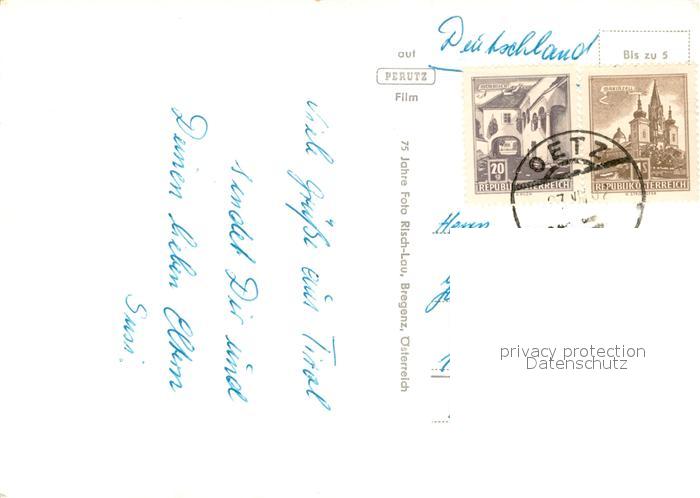 Viele Grüße aus Tirol
sendet Dir und
Deinen lieben Eltern
Susi.
auf
PERUTZ
Film
75 Jahre Foto Risch-Lau, Bregenz, Österreich
Deutschland
Bis zu 5
MÖRBISCH
20 g
REPUBLIK ÖSTERREICH
MARIAZELL
1 S
REPUBLIK ÖSTERREICH
OETZ
Herrn
privacy protection
Datenschutz